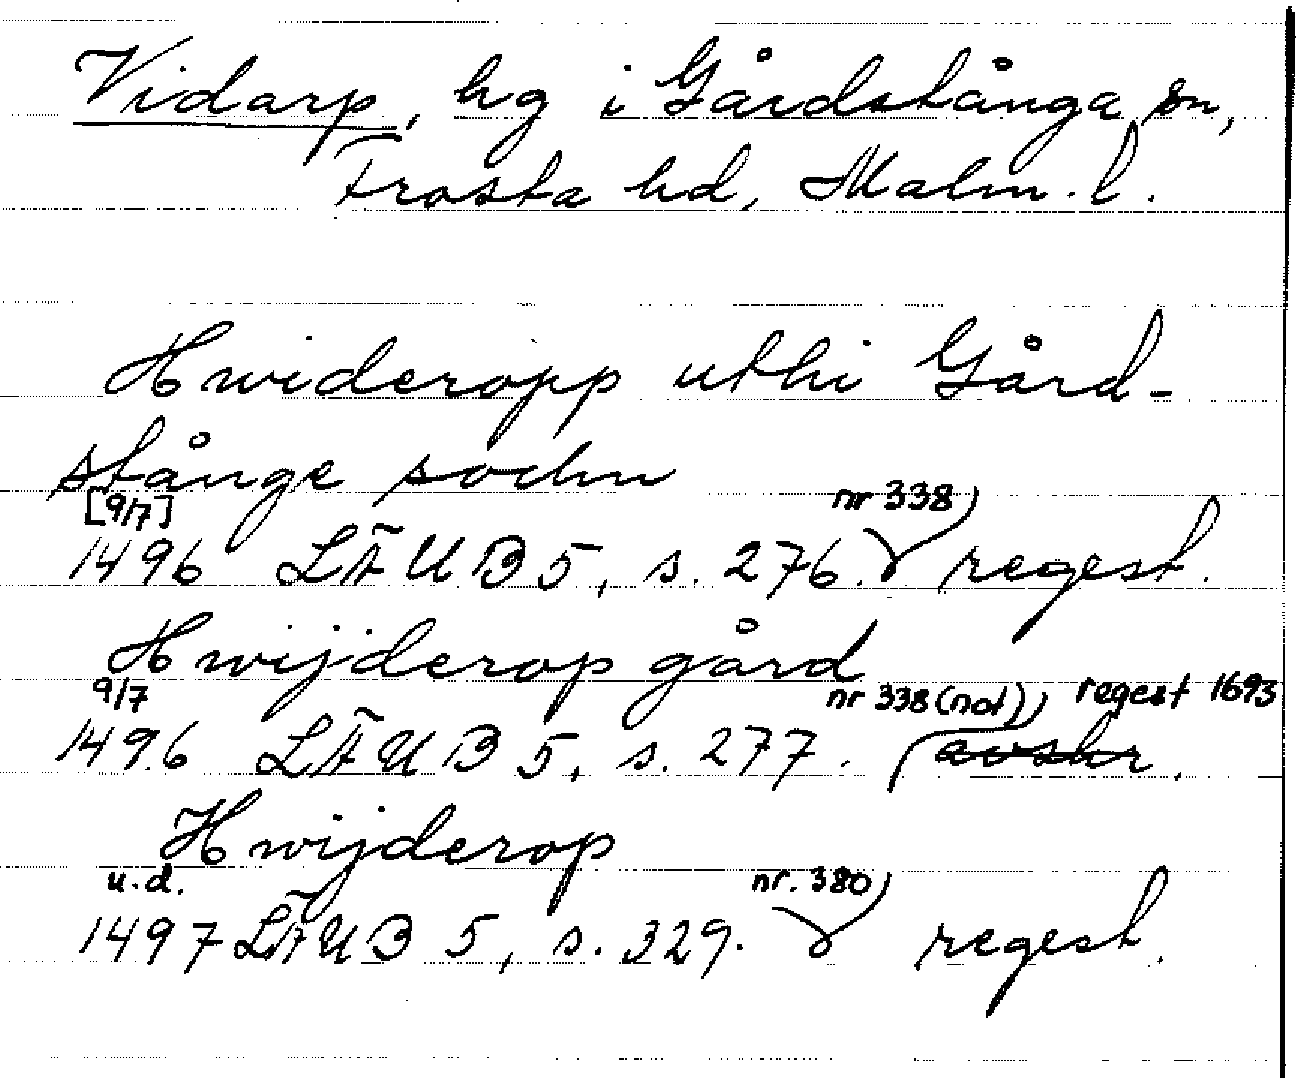 Vidarp, hg i Gårdstånga sn,
Frosta hd, Malm. l.
Hwideropp uthi Gård-
stånge sochn
[9/7] nr 338)
1496 LÄUB 5, s. 276. regest.
Hwijderop gård
9/7 nr 338 (not)) regest 1693
1496 LÄUB 5, s. 277. avskr.
Hwijderop
u.d. nr. 380)
1497 LÄUB 5, s. 329. regest.